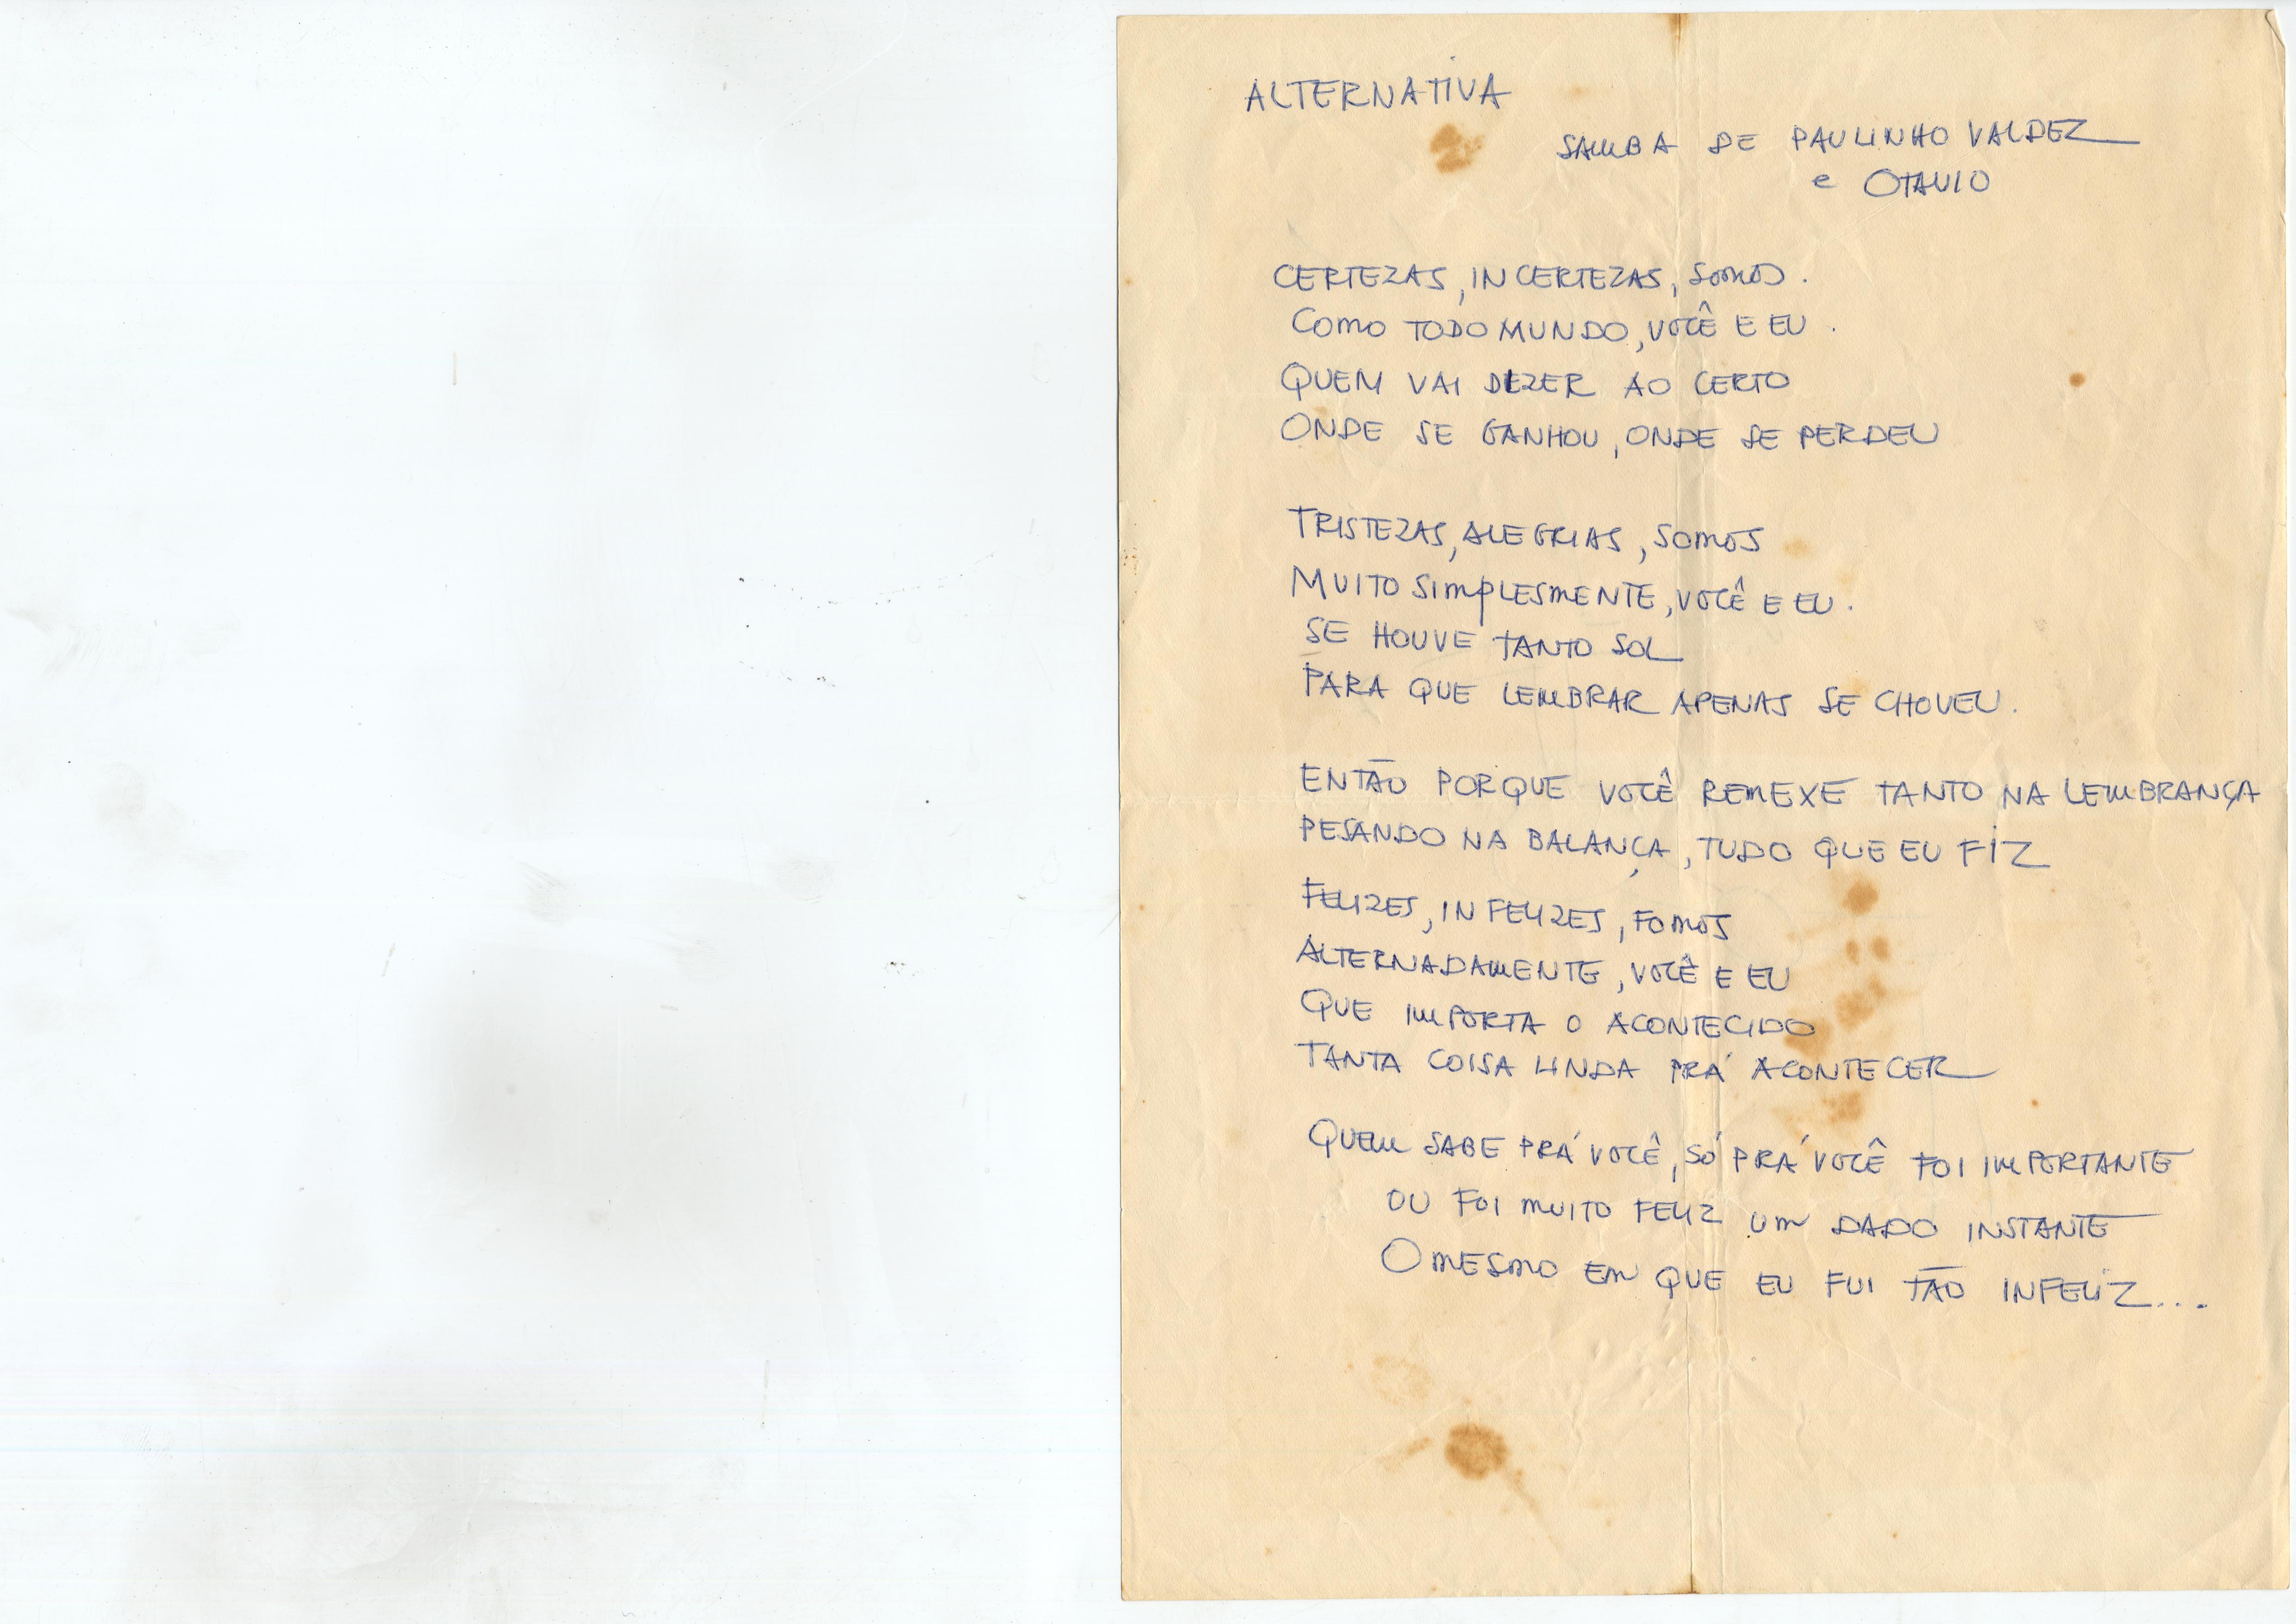 ALTERNATIVA
SAMBA DE PAULINHO VALDEZ
e OTAVIO
CERTEZAS, INCERTEZAS, SOMOS.
COMO TODO MUNDO, VOCÊ E EU.
QUEM VAI DIZER AO CERTO
ONDE SE GANHOU, ONDE SE PERDEU
TRISTEZAS, ALEGRIAS, SOMOS
MUITO SIMPLESMENTE, VOCÊ E EU.
SE HOUVE TANTO SOL
PARA QUE LEMBRAR APENAS SE CHOVEU.
ENTÃO PORQUE VOCÊ REMEXE TANTO NA LEMBRANÇA
PESANDO NA BALANÇA, TUDO QUE EU FIZ
FELIZES, INFELIZES, FOMOS
ALTERNADAMENTE, VOCÊ E EU
QUE IMPORTA O ACONTECIDO
TANTA COISA LINDA PRÁ ACONTECER
QUEM SABE PRÁ VOCÊ, SÓ PRÁ VOCÊ FOI IMPORTANTE
OU FOI MUITO FELIZ UM DADO INSTANTE
O MESMO EM QUE EU FUI TÃO INFELIZ...